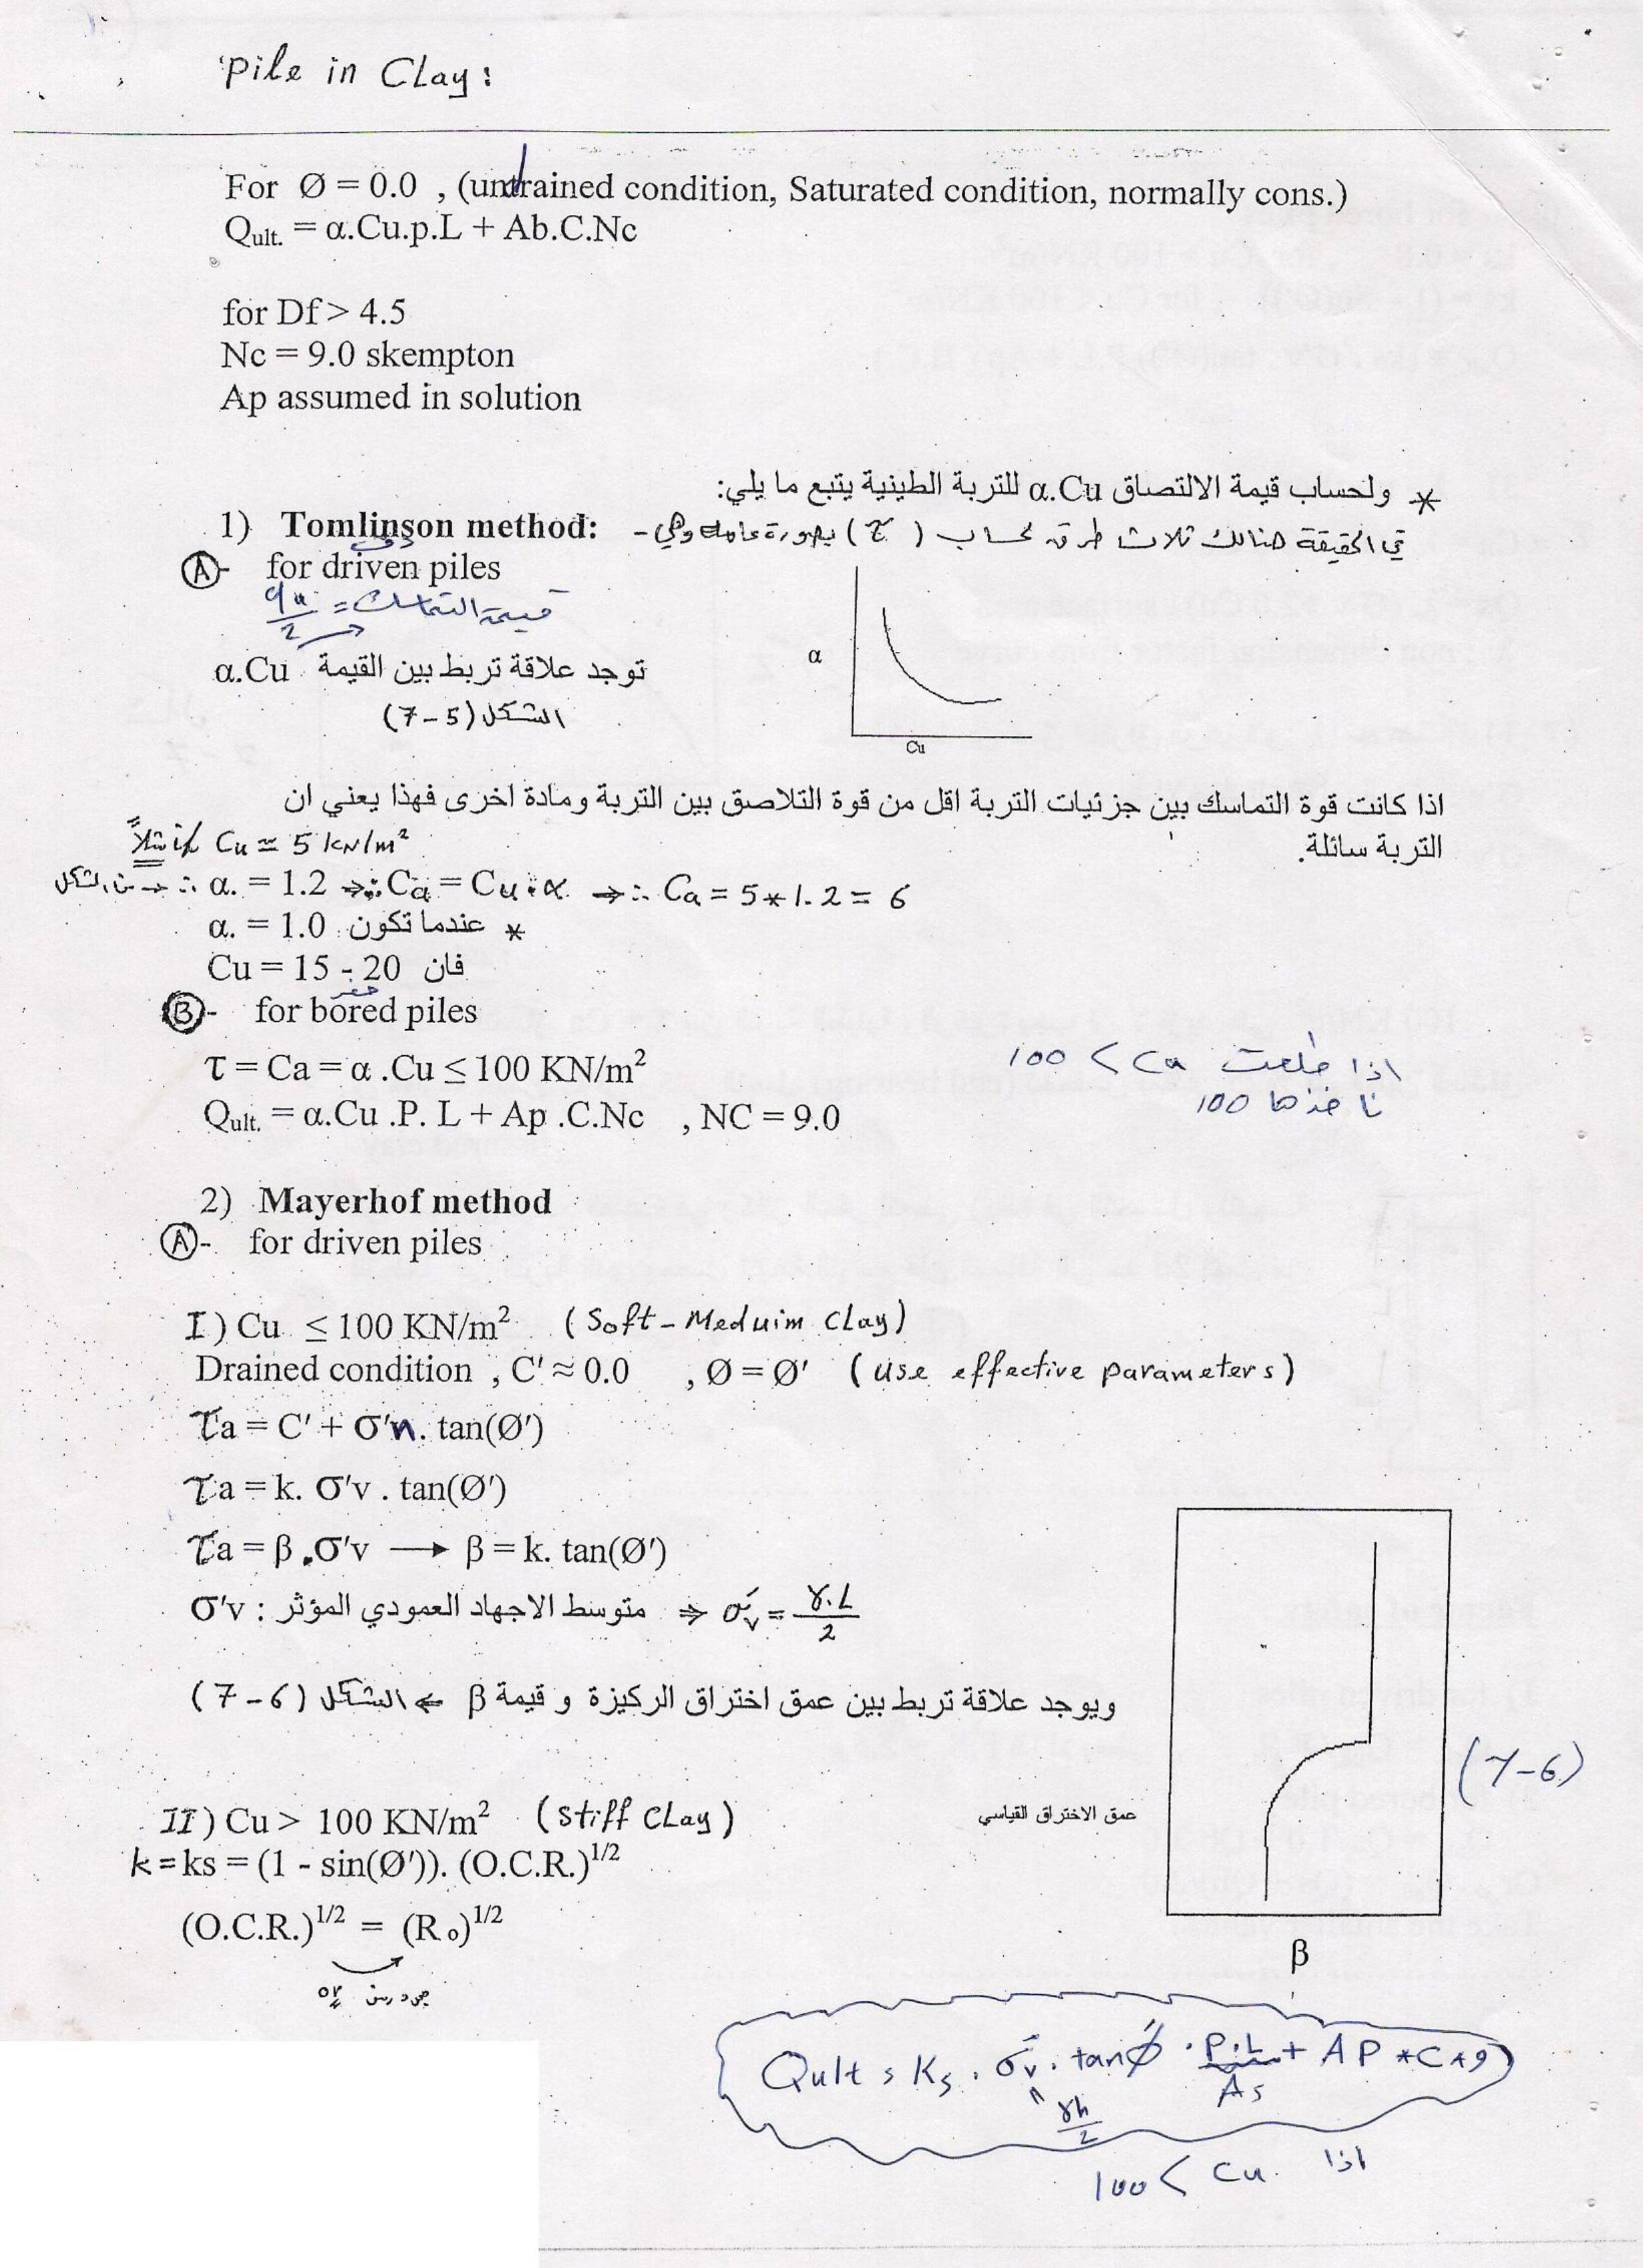 Pile in Clay:
For Ø = 0.0 , (undrained condition, Saturated condition, normally cons.)
Qult. = α.Cu.p.L + Ab.C.Nc
for Df > 4.5
Nc = 9.0 skempton
Ap assumed in solution
* ولحساب قيمة الالتصاق α.Cu للتربة الطينية يتبع ما يلي:
في الحقيقة هنالك ثلاث طرق لحساب ( τ ) بصورة عامة وهي -
1) Tomlinson method:
دق
A- for driven piles
قيمة التماسك = qu/2
توجد علاقة تربط بين القيمة α.Cu
الشكل (5-7)
α
Cu
اذا كانت قوة التماسك بين جزئيات التربة اقل من قوة التلاصق بين التربة ومادة اخرى فهذا يعني ان
التربة سائلة.
مثلاً if Cu ≃ 5 kN/m²
من الشكل → ∴ α. = 1.2 → ∴ Ca = Cu . α → ∴ Ca = 5*1.2 = 6
* عندما تكون α. = 1.0
فان Cu = 15 - 20
حفر
B- for bored piles
τ = Ca = α .Cu ≤ 100 KN/m²
اذا طلعت Ca > 100
ناخذها 100
Qult. = α.Cu .P. L + Ap .C.Nc , NC = 9.0
2) Mayerhof method
A- for driven piles
I) Cu ≤ 100 KN/m² (Soft - Meduim Clay)
Drained condition , C' ≈ 0.0 , Ø = Ø' (use effective parameters)
τa = C' + σ'n. tan(Ø')
τa = k. σ'v . tan(Ø')
τa = β.σ'v → β = k. tan(Ø')
σ'v : متوسط الاجهاد العمودي المؤثر ⇒ σ'v = γ.L/2
ويوجد علاقة تربط بين عمق اختراق الركيزة و قيمة β ⇐ الشكل (6-7)
(7-6)
عمق الاختراق القياسي
β
II) Cu > 100 KN/m² (Stiff Clay)
k = ks = (1 - sin(Ø')). (O.C.R.)^1/2
(O.C.R.)^1/2 = (R₀)^1/2
Qult = Ks . σ'v . tanØ' . P.L + AP * C * 9
As
γh/2
اذا Cu > 100